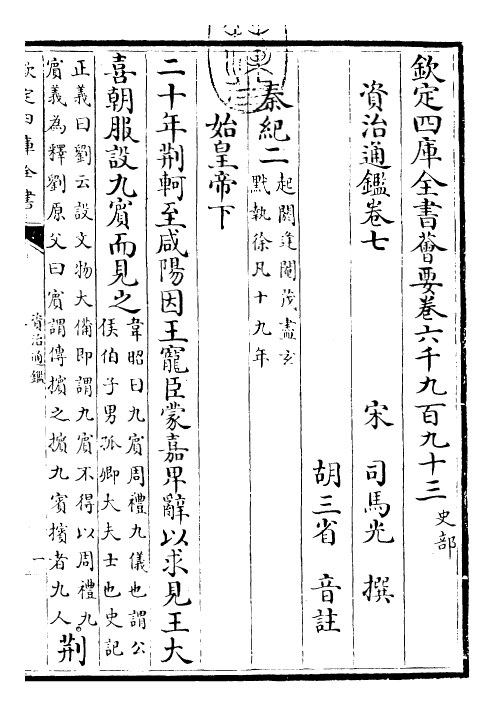 欽定四庫全書薈要卷六千九百九十三 史部
資治通鑑卷七
宋 司馬光 撰
胡三省 音註
秦紀二 起閼逢閹茂盡玄
黓執徐凡十九年
始皇帝下
二十年荆軻至咸陽因王寵臣蒙嘉卑辭以求見王大
喜朝服設九賔而見之 韋昭曰九賔周禮九儀也謂公
侯伯子男孤卿大夫士也史記
正義曰劉云設文物大備即謂九賔不得以周禮九
賔義為釋劉原父曰賔謂傳擯之擯九賔擯者九人。荆
欽定四庫全書
資治通鑑
一